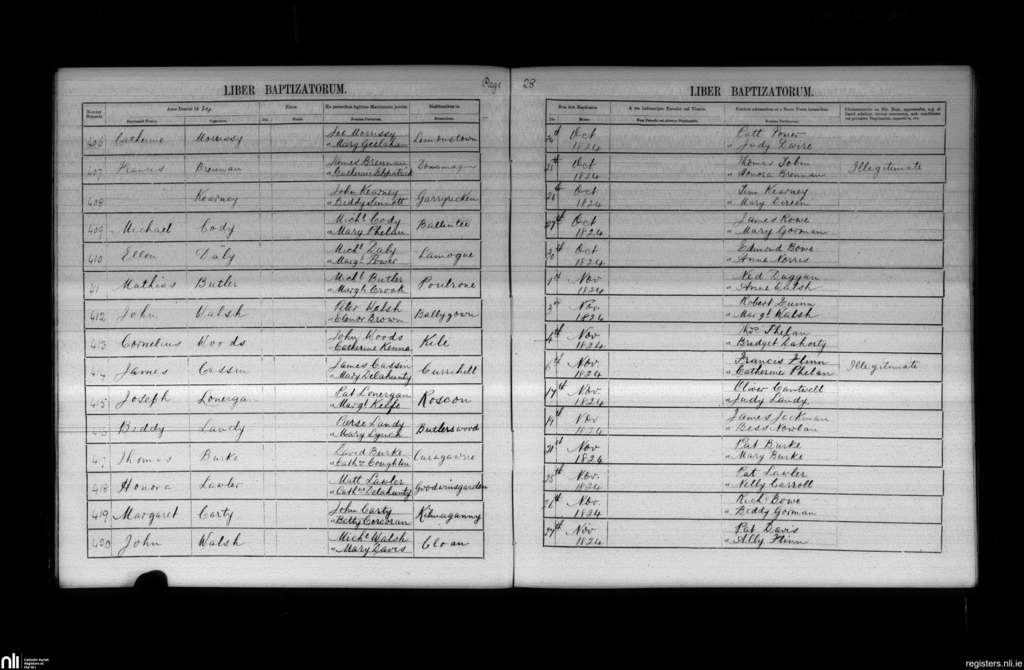 Page 28
LIBER BAPTIZATORUM.
LIBER BAPTIZATORUM.
406 Catherine Morrissy Joe Morrissy Lemonstown Oct Patt Power
" Mary Geelahan 1824 " Judy Dwire
407 Francis Brennan James Brennan 25th Oct Thomas Tobin Illegitimate
" Catherine Fitzpatrick 1824 " Honora Brennan
408 Kearney John Kearney Garryricken Oct Tim Kearney
" Biddy Sinnott 1824 " Mary Dreen
409 Michael Cody Michl Cody Ballintee 27th Oct James Rowe
" Mary Phelan 1824 " Mary Gorman
410 Ellen Daly Michl Daly Lamogue 30th Oct Edmond Bowe
" Margt Power 1824 " Anne Norris
Mathias Butler Michl Butler Poulrone 1st Nov Ned Duggan
" Margt Crook 1824 " Anne Walsh
412 John Walsh Peter Walsh Ballygown 3rd Nov Robert Quinn
" Elenor Brown 1824 " Margt Walsh
413 Cornelius Woods John Woods Kile 4th Nov Phelan
" Catherine Kenna 1824 " Bridget Dahorty
James Cassin James Cassin Currehill 6th Nov Francis Flinn Illegitimate
" Mary Delahunty 1824 " Catherine Phelan
415 Joseph Lonergan Pat Lonergan Roscon 14th Nov Oliver Cantwell
" Margt Keeffe 1824 " Judy Landy
Biddy Landy Pierse Landy Butlerswood 19th Nov James Jackman
" Mary Lynch 1824 " Bess Nowlan
417 Thomas Burke David Burke Curagawne 21st Nov Pat Burke
" Cathne Coughlen 1824 " Mary Burke
418 Honora Lawler Matt Lawler Goodwinsgarden 25th Nov Pat Lawler
" Cathne Delahunty 1824 " Nelly Carroll
419 Margaret Carty John Carty Kilmaganny Nov Richd Bowe
" Betty Corcoran 1824 " Biddy Gorman
420 John Walsh Michl Walsh Cloan 27th Nov Pat Davis
" Mary Davis 1824 " Ally Flinn
nli
Catholic Parish
Registers at
the NLI
registers.nli.ie